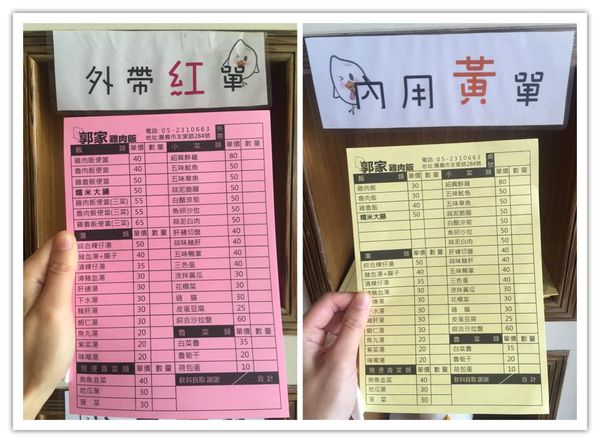 外帶紅單
郭家雞肉飯 電話: 05-2310663 外帶
地址:嘉義市友愛路284號
飯類 單價 數量 小菜類 單價 數量
雞肉飯便當 40 紹興醉雞 80
魯肉飯便當 40 五味魷魚 50
雞魯飯便當 50 五味章魚 50
糯米大腸 50 蒜泥脆腸 50
雞肉飯便當(三菜) 55 白醋涼筍 50
魯肉飯便當(三菜) 55 魚卵沙拉 50
雞魯飯便當(三菜) 65 蒜泥白肉 50
湯類 單價 數量 肝連切盤 40
綜合粿仔湯 50 蒜味豬肝 40
豬血湯+腸子 40 五味鴨掌 40
清粿仔湯 35 三色蛋 40
清豬血湯 30 涼拌黃瓜 30
肝連湯 30 花椰菜 30
下水湯 30
豬肝湯 30 皮蛋豆腐 25
蝦仁湯 30 綜合沙拉盤 60
魚丸湯 20 魯菜類 單價 數量
紫菜湯 20 白菜魯 35
味噌湯 20 魯筍干 20
現燙青菜類 單價 數量 荷包蛋 10
柴魚韭菜 40 飲料自取謝謝 合計
地瓜葉 30
菠菜 30
內用黃單
郭家雞肉飯 電話: 05-2310663 桌號
地址:嘉義市友愛路284號
飯類 單價 數量 小菜類 單價 數量
雞肉飯 30 紹興醉雞 80
魯肉飯 30 五味魷魚 50
雞魯飯 40 五味章魚 50
糯米大腸 50 蒜泥脆腸 50
白醋涼筍 50
魚卵沙拉 50
蒜泥白肉 50
湯類 單價 數量 肝連切盤 40
綜合粿仔湯 50 蒜味豬肝 40
豬血湯+腸子 40 五味鴨掌 40
清粿仔湯 35 三色蛋 40
清豬血湯 30 涼拌黃瓜 30
肝連湯 30 花椰菜 30
下水湯 30
豬肝湯 30 皮蛋豆腐 25
蝦仁湯 30 綜合沙拉盤 60
魚丸湯 20 魯菜類 單價 數量
紫菜湯 20 白菜魯 35
味噌湯 20 魯筍干 20
現燙青菜類 單價 數量 荷包蛋 10
柴魚韭菜 40 飲料自取謝謝 合計
地瓜葉 30
菠菜 30